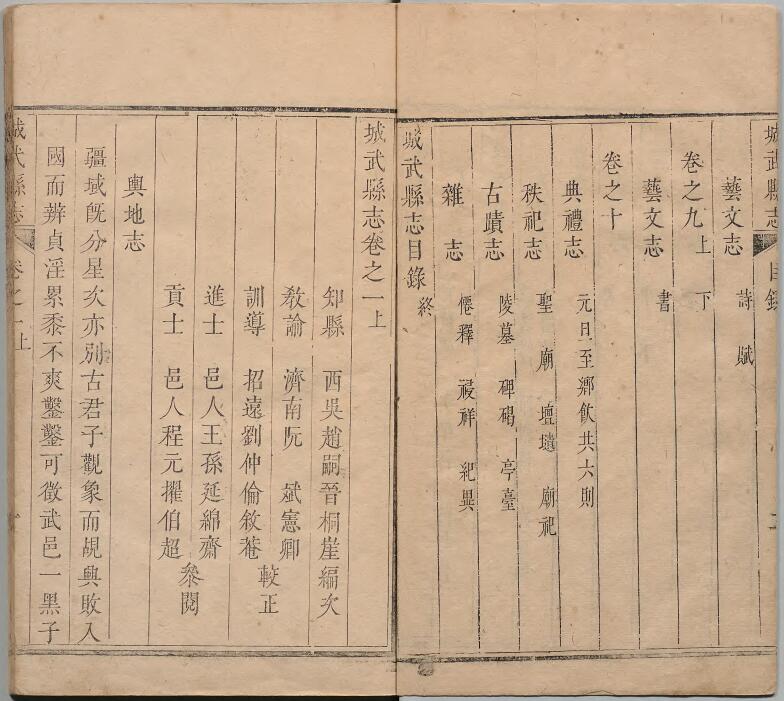 城武縣志 目錄
藝文志 詩 賦
卷之九上 下
藝文志 書
卷之十
典禮志 元旦至鄉飲共六則
秩祀志 聖廟 壇壝 廟祀
古蹟志 陵墓 碑碣 亭臺
雜志 僊釋 祲祥 紀異
城武縣志目錄終
城武縣志卷之一上
知縣 西吳趙嗣晉桐崖編次
教諭 濟南阮 斌憲卿
訓導 招遠劉仲倫敘菴
較正
進士 邑人王孫延綿齋
貢士 邑人程元擢伯超
叅閱
輿地志
疆域旣分星次亦別古君子觀象而覘興敗入
國而辨貞淫累黍不爽鑿鑿可徵武邑一黑子
城武縣志 卷之一上